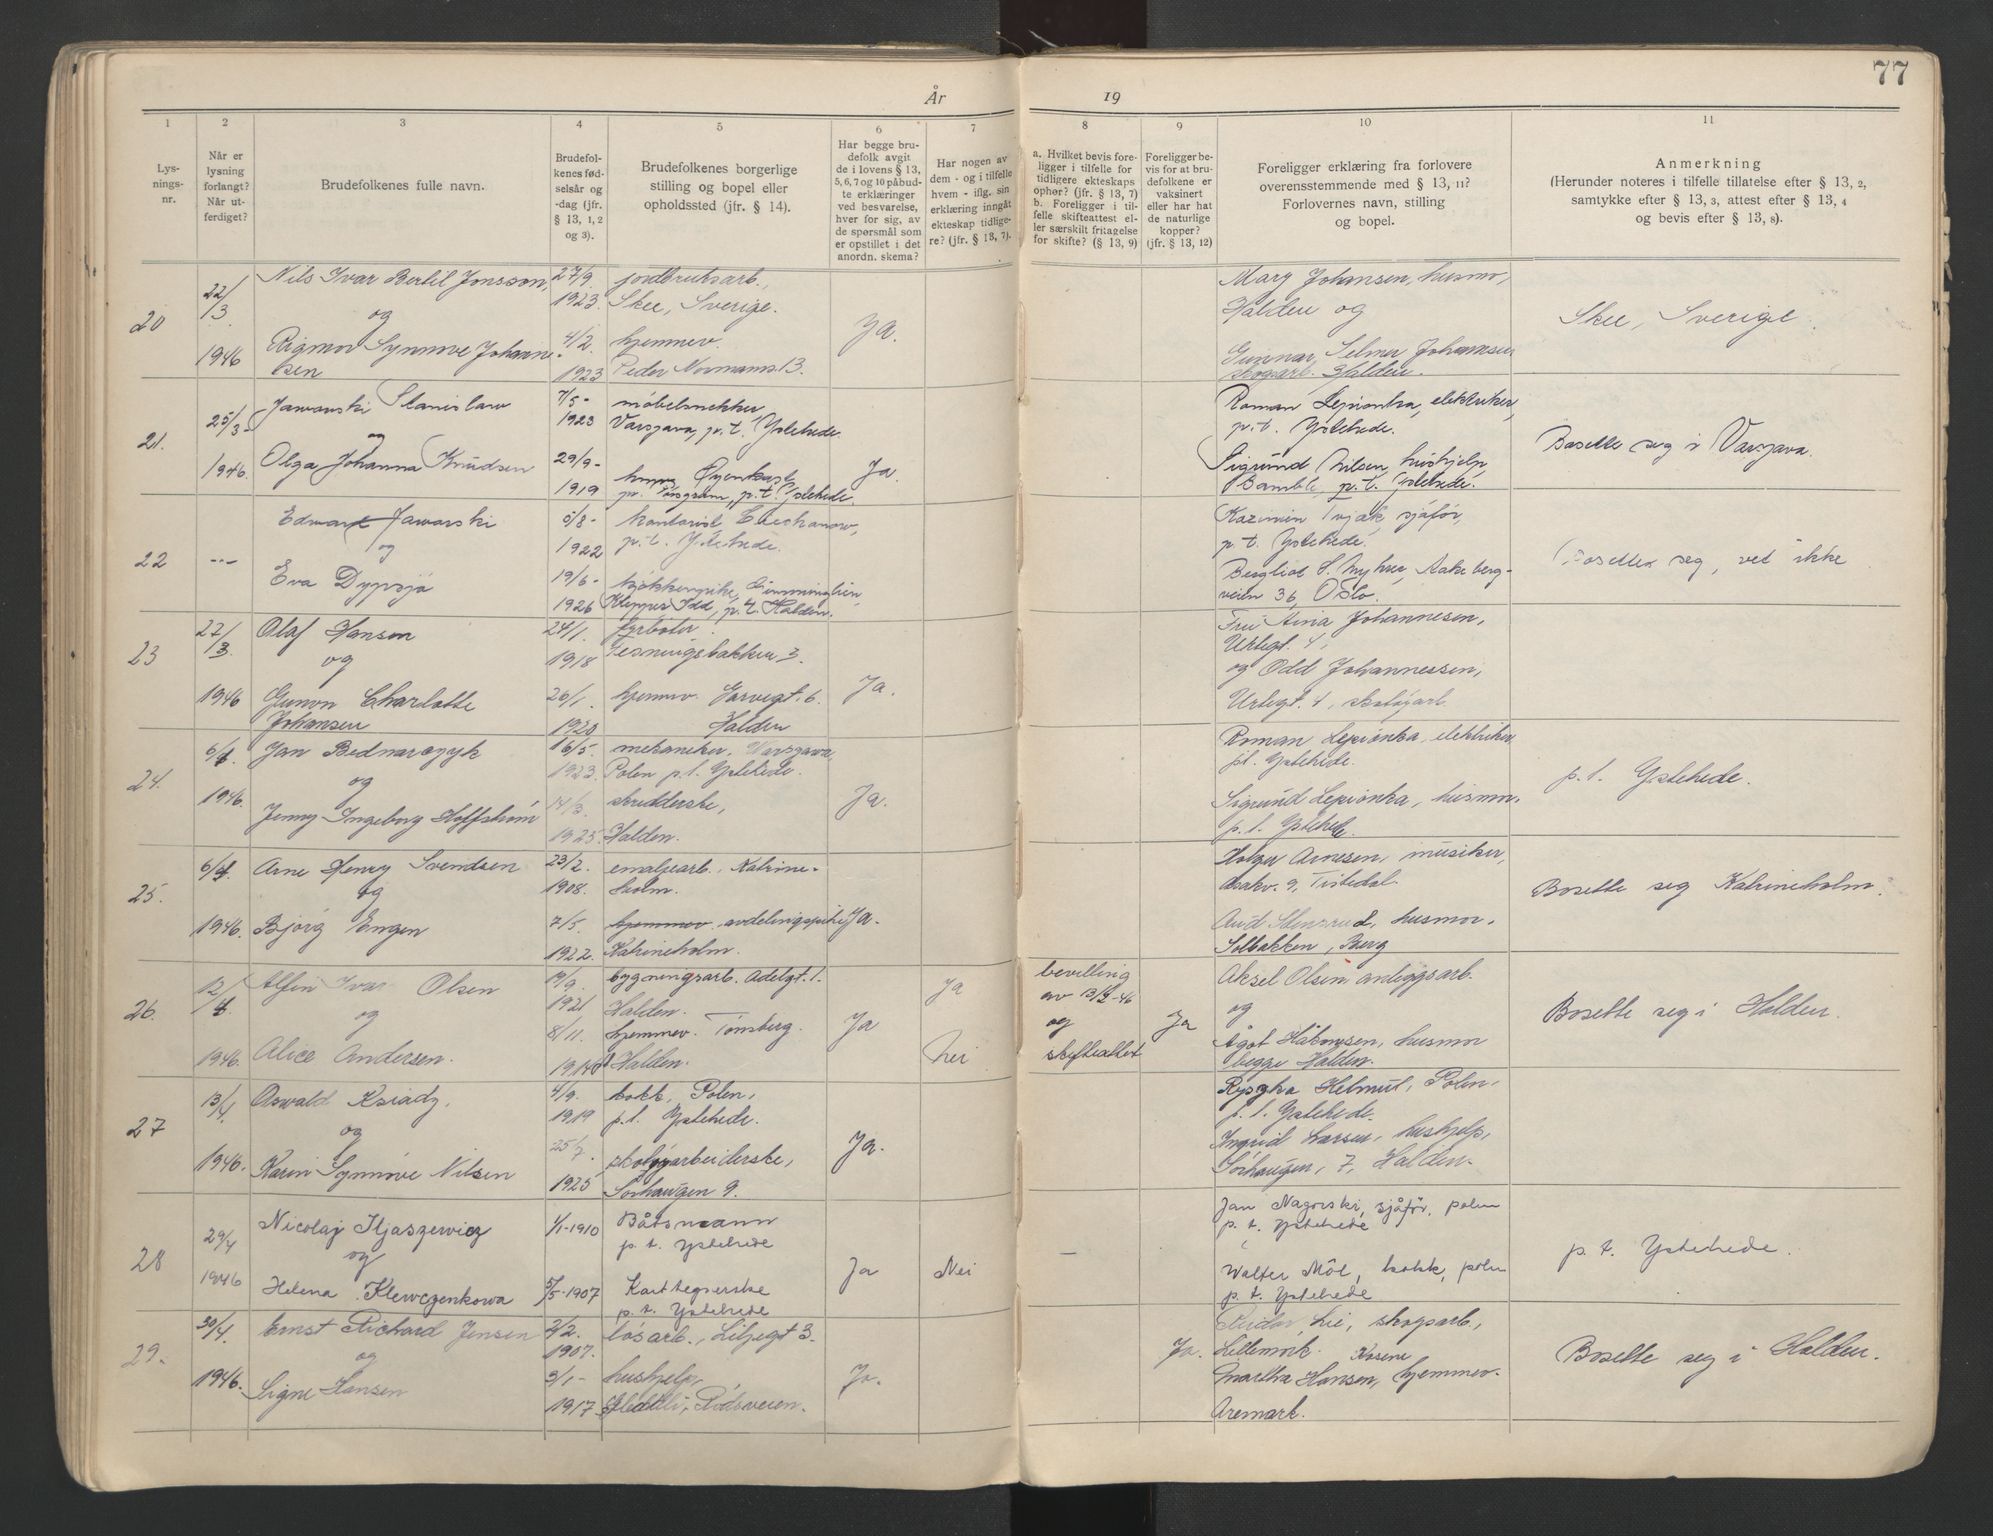 77
År
19
1
2
3
4
5
6
7
8
9
10
11
Lys-
nings-
nr.
Når er
lysning
forlangt?
Når ut-
ferdiget?
Brudefolkenes fulle navn.
Brudefol-
kenes fød-
selsår og
-dag (jfr.
§ 13, 1, 2
og 3).
Brudefolkenes borgerlige
stilling og bopel eller
opholdssted (jfr. § 14).
Har begge bru-
defolk avgit
de i lovens § 13,
5, 6, 7 og 10 påbud-
te erklæringer
ved besvarelse,
hver for sig, av
de spørsmål som
er opstillet i det
anordn. skema?
Har nogen av
dem - og i tilfelle
hvem - iflg. sin
erklæring inngått
ekteskap tidlige-
re? (jfr. § 13, 7).
a. Hvilket bevis fore-
ligger i tilfelle for
tidligere ekteskaps
ophør? (jfr. § 13, 7)
b. Foreligger i til-
felle skifteattest el-
ler særskilt fritagelse
for skifte? (§ 13, 9)
Foreligger be-
vis for at bru-
defolkene er
vaksinert
eller har hat
de naturlige
kopper?
(jfr. § 13, 12)
Foreligger erklæring fra forlovere
overensstemmende med § 13, 11?
Forlovernes navn, stilling
og bopel.
Anmerkning
(Herunder noteres i tilfelle tillatelse efter § 13, 2,
samtykke efter § 13, 3, attest efter § 13, 4
og bevis efter § 13, 8).
20
22/3
1946
Nils Ivar Bertil Jonsson,
og
Rigmor Synnøve Johanne-
sen
27/9.
1923.
4/2.
1923
jordbruksarb.,
Skee, Sverige.
hjemmev.
Peder Normanns 13.
Ja.
Mary Johansen, husmo,
Halden og
Gunnar Selmer Johansen
skogsarb. Halden.
Skee, Sverige.
21.
25/3-
1946.
Jaworski Stanislaw
og
Olga Johanna Knudsen
7/5-
1923
29/9-
1919
møbelsnekker,
Varsjava, p.t. Ystehede.
p.t. Ystehede.
Ja.
Roman Lepionka, elektriker,
p.t. Ystehede.
Sigrund Nilsen, hushjelp,
Bamble, p.t. Ystehede.
Bosette seg i Varsjava.
22
---
Edward Jaworski
og
Eva Dypsjø
5/8-
1922
19/6-
1926
kontorist Ciechanow,
p.t. Ystehede.
kjøkkenpike,
Idd, p.t. Halden.
p.t. Ystehede.
veien 36, Oslo.
Bosetter seg, vet ikke
23
27/3.
1946
Olaf Hansen
og
Gunvor Charlotte
Johansen
24/1.
1918
26/1.
1920
fyrbøter.
3.
hjemmev. Garvegt. 6.
Halden
Ja.
Fru Aina Johannesen,
Urtegt. 4,
og Odd Johannessen,
Urtegt. 4, skotøyarb.
24.
6/4.
1946.
Jan Bednarczyk
og
Jenny Ingeborg Hoffstrøm
16/5.
1923.
14/3.
1925
mekaniker, Warsjawa,
Polen p.t. Ystehede.
skredderske,
Halden.
Ja.
Roman Lepionka, elektriker
p.t. Ystehede.
Sigrund Lepionka, husmor.
p.t. Ystehede.
p.t. Ystehede.
25.
6/4.
1946.
Arne Henry Svendsen
og
Bjørg Engen
23/2.
1908.
7/5.
1922.
emaljearb. Katrine-
holm.
hjemmev. avdelingspike
Katrineholm.
Ja.
Holger Arnesen, musiker,
9, Tistedal.
husmor,
Solbakken, Berg
Bosette seg Katrineholm.
26.
12/4.
1946.
Alfin Ivar Olsen
og
Alice Andersen.
19/9.
1921
8/11.
bygningsarb. Adelgt. 1.
Halden.
hjemmev. Tønsberg.
Halden.
Ja
Ja
Nei
bevilling
av 13/2-46
og
skifteattest
Ja
Aksel Olsen anleggsarb.
og
Ågot Håkonsen, husmor
begge Halden.
Bosette seg i Halden.
27
13/4
1946.
Oswald Ksiadz,
og
Karin Synnøve Nilsen
4/9.
1919
25/7.
1925
kokk, Polen,
p.t. Ystehede.
skotøyarbeiderske,
Sørhaugen 9.
Ja.
Helmut, Polen,
p.t. Ystehede.
Ingrid Larsen, hushjelp,
Sørhaugen, 7, Halden.
28
29/4
1946
Nicolaj Iljaszewicz
og
Helena Klewczenkowa
1/1-1910
5/5-1907
Båtsmann
p.t. Ystehede
Karttegnerske
p.t. Ystehede
Ja
Nei
—
Jan Nagorski, sjåfør, polen
p.t. Ystehede
Walter Möl, kokk, polen
p.t. Ystehede
p.t. Ystehede.
29.
30/4.
1946.
Ernst Richard Jensen
og
Signe Hansen
2/2.
1907.
3/1-
1917
løsarb., Liljegt 3.
hushjelp,
Rødsveien.
Ja.
Ja.
Reidar Lie, skogsarb,
Lillemork.
Kasene
Martha Hansen, hjemmev.
Aremark.
Bosette seg i Halden.